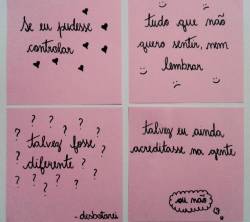 Se eu pudesse
controlar
tudo que não
quero sentir, nem
lembrar
talvez fosse
diferente
- desbotarei
talvez eu ainda
acreditasse na gente
ou não